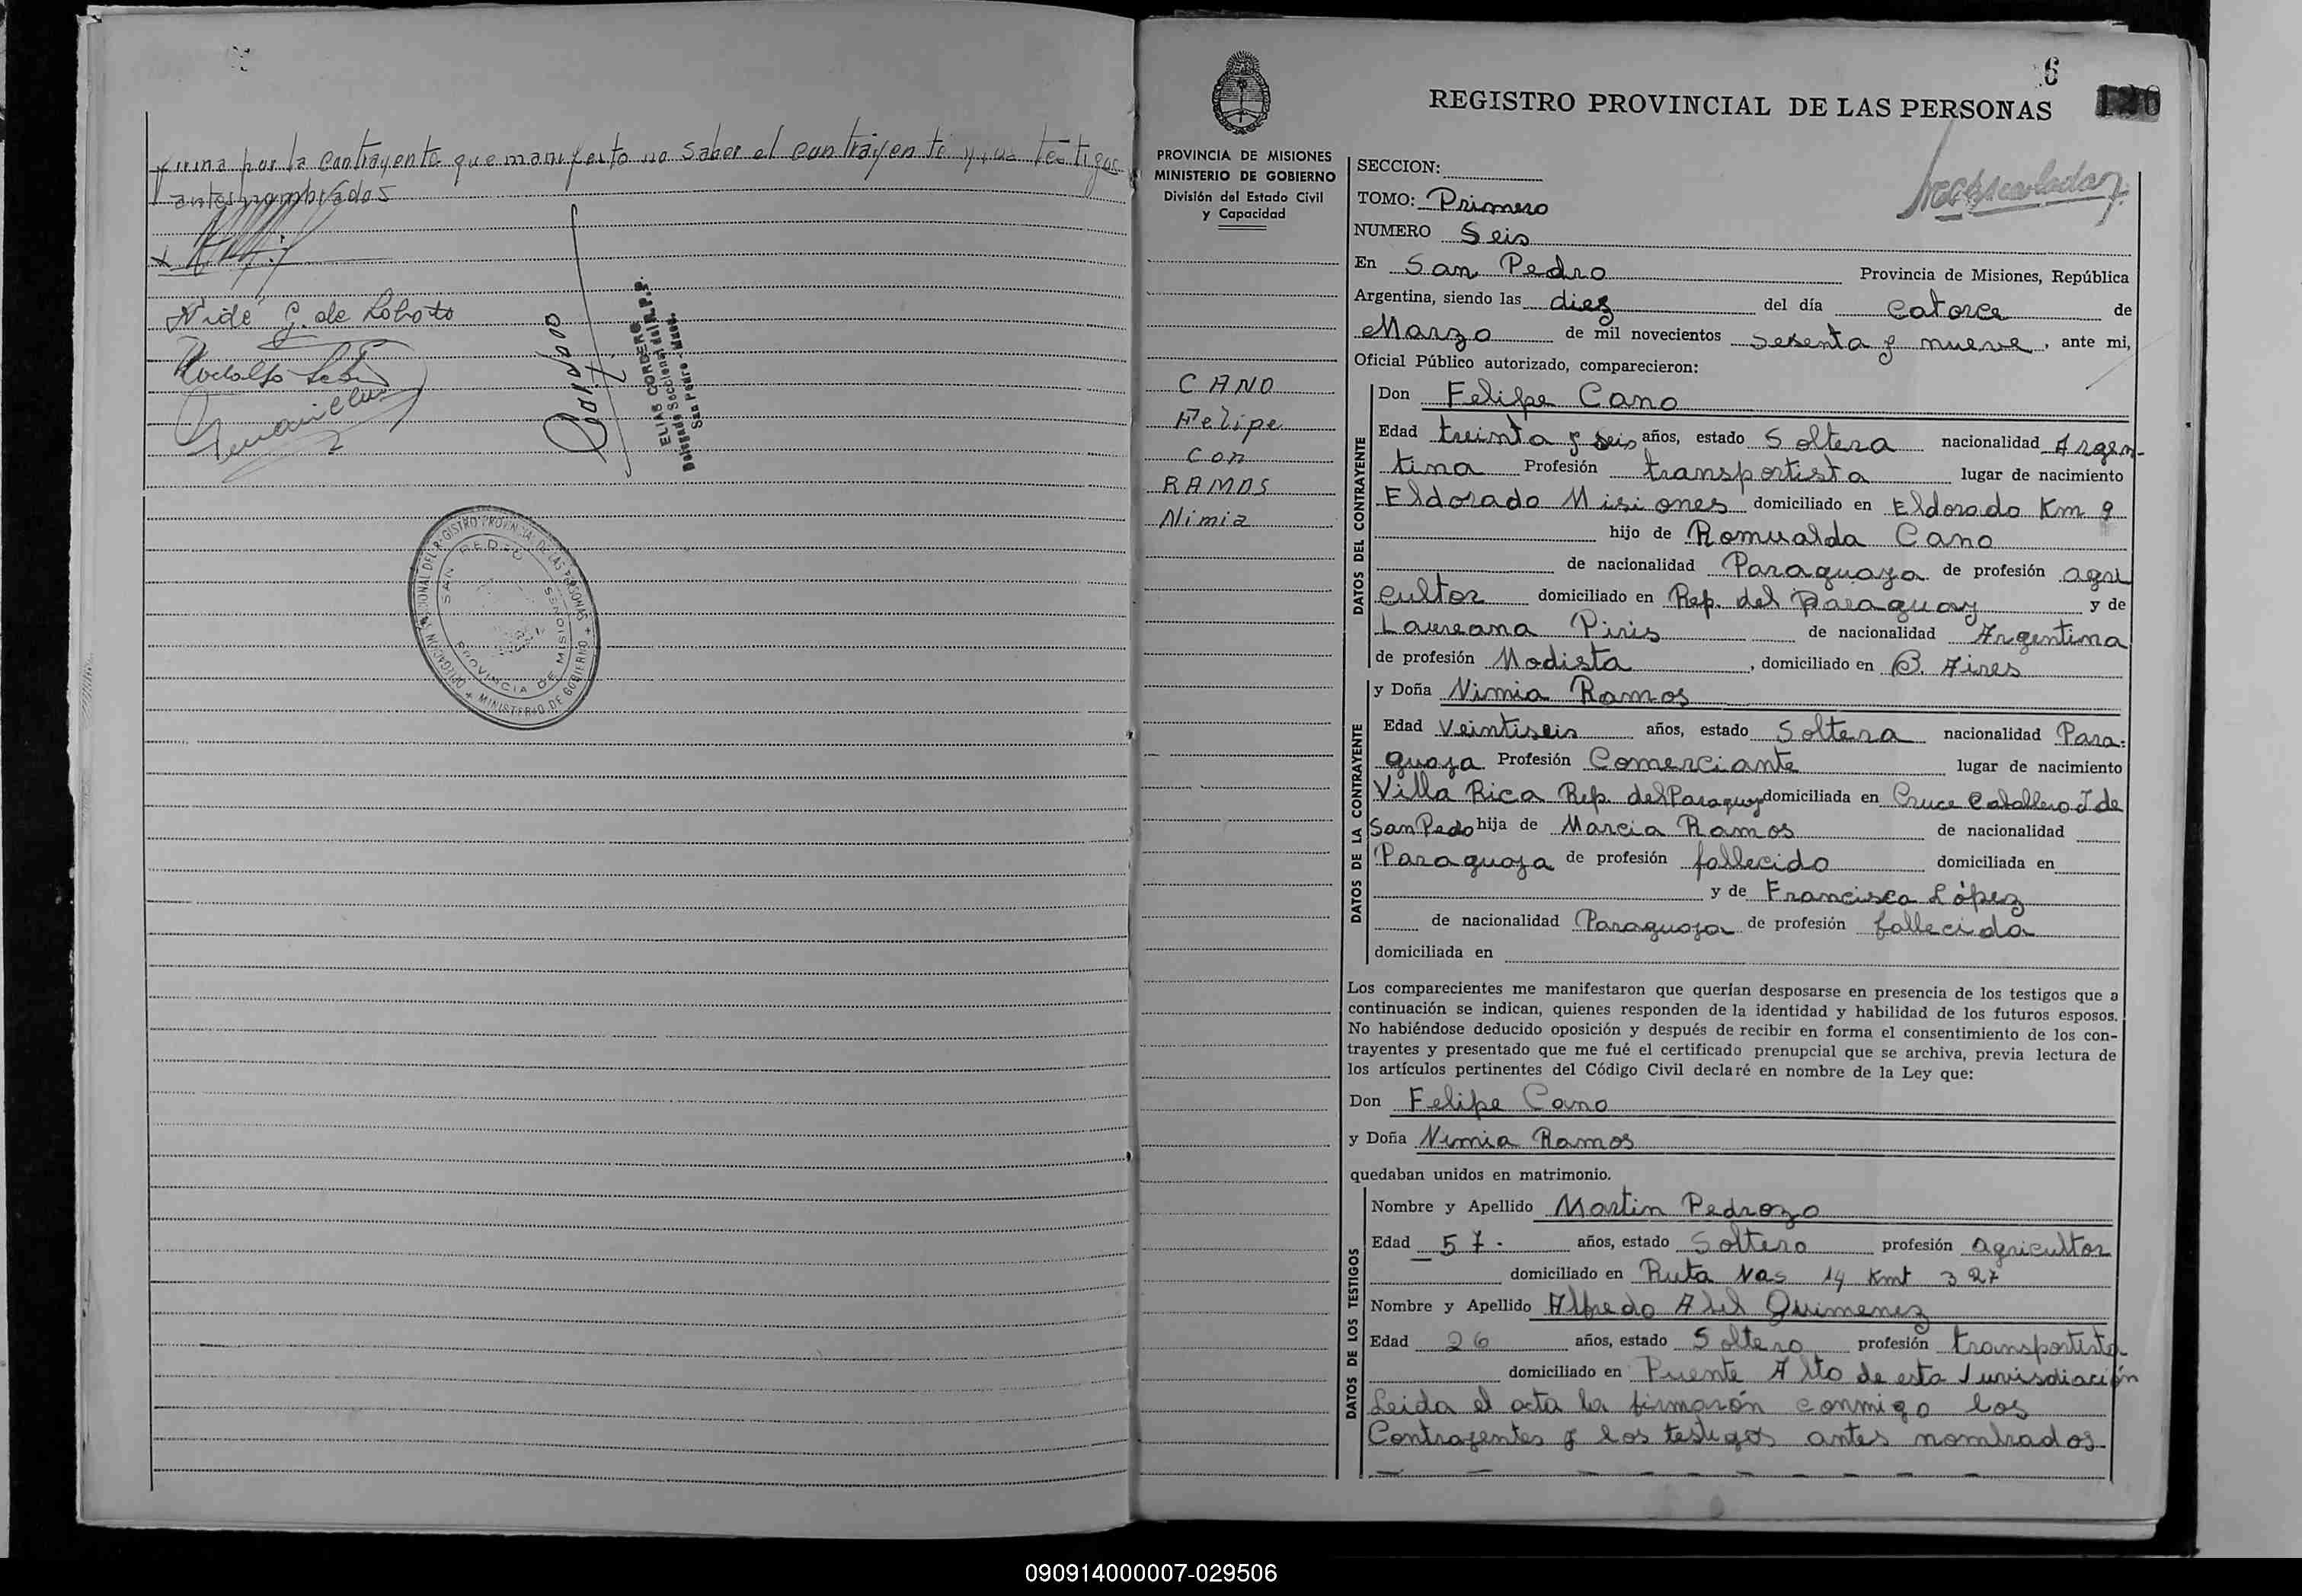 firma por la contrayente que manifesto no saber el contrayente y los testigos
antes nombrados
Nide G. de Loboto
Rodolfo
Cordero
ELIAS CORDERO
Delegado Seccional del R.P.P.
San Pedro - Mnes.
DELEGACIÓN SECCIONAL DEL REGISTRO PROVINCIAL DE LAS PERSONAS + MINISTERIO DE GOBIERNO +
SAN PEDRO MISIONES
PROVINCIA DE MISIONES
6
REGISTRO PROVINCIAL DE LAS PERSONAS
PROVINCIA DE MISIONES
MINISTERIO DE GOBIERNO
División del Estado Civil
y Capacidad
CANO
Felipe
con
RAMOS
Nimia
SECCION:
TOMO: Primero
NUMERO Seis
En San Pedro Provincia de Misiones, República
Argentina, siendo las diez del día catorce de
Marzo de mil novecientos sesenta y nueve, ante mi,
Oficial Público autorizado, comparecieron:
DATOS DEL CONTRAYENTE
Don Felipe Cano
Edad treinta y seis años, estado Soltera nacionalidad Argen-
tina Profesión transportista lugar de nacimiento
Eldorado Misiones domiciliado en Eldorado Km 9
hijo de Romualda Cano
de nacionalidad Paraguaya de profesión agri
cultor domiciliado en Rep. del Paraguay y de
Laureana Piris de nacionalidad Argentina
de profesión Modista, domiciliado en B. Aires
DATOS DE LA CONTRAYENTE
y Doña Nimia Ramos
Edad Veintiseis años, estado Soltera nacionalidad Para-
guaya Profesión Comerciante lugar de nacimiento
Villa Rica Rep. del Paraguay domiciliada en Cruce Caballero J de
San Pedo hija de Marcia Ramos de nacionalidad
Paraguaya de profesión fallecido domiciliada en
y de Francisca López
de nacionalidad Paraguaya de profesión fallecida
domiciliada en
Los comparecientes me manifestaron que querían desposarse en presencia de los testigos que a
continuación se indican, quienes responden de la identidad y habilidad de los futuros esposos.
No habiéndose deducido oposición y después de recibir en forma el consentimiento de los con-
trayentes y presentado que me fué el certificado prenupcial que se archiva, previa lectura de
los artículos pertinentes del Código Civil declaré en nombre de la Ley que:
Don Felipe Cano
y Doña Nimia Ramos
quedaban unidos en matrimonio.
DATOS DE LOS TESTIGOS
Nombre y Apellido Martin Pedrozo
Edad 57.- años, estado Soltero profesión agricultor
domiciliado en Ruta Nac 14 Kmt 327
Nombre y Apellido Alfredo Abel Quimenez
Edad 26 años, estado Soltero profesión transportista
domiciliado en Puente Alto de esta Jurisdiación
Leida el acta la firmarón conmigo los
Contrayentes y los testigos antes nombrados-
090914000007-029506